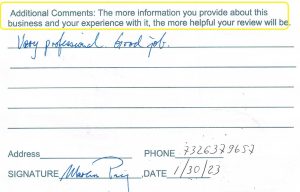 Additional Comments: The more information you provide about this
business and your experience with it, the more helpful your review will be.
Very professional. Good job.
Address PHONE 7326379657
SIGNATURE DATE 1/30/23